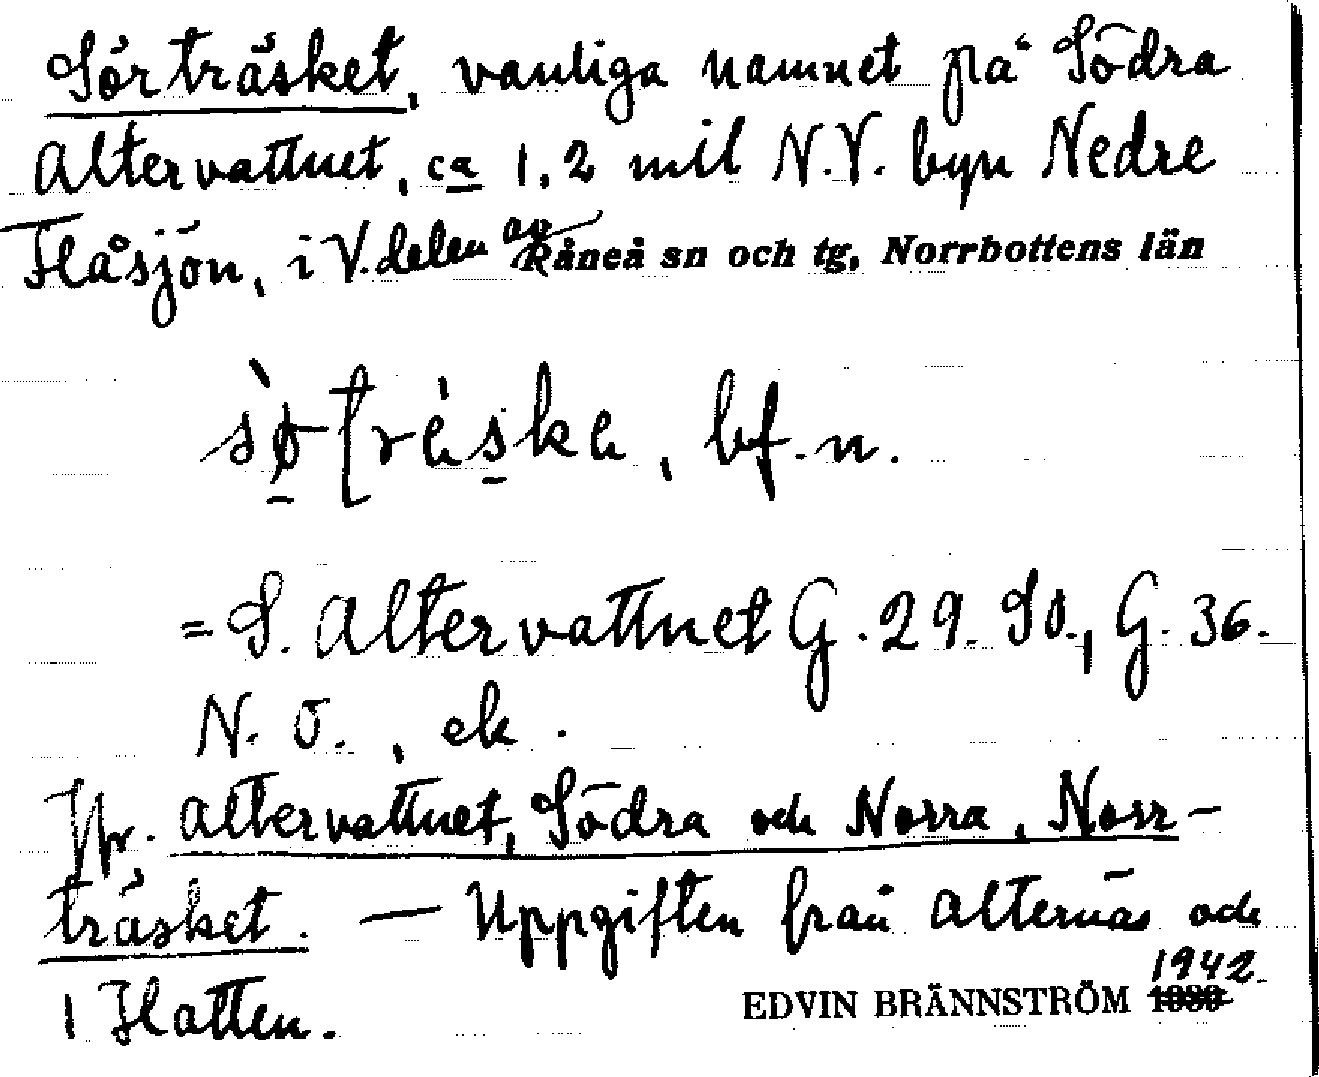 Sörträsket, vanliga namnet på Södra
Altervattnet, ca 1,2 mil N.V. byn Nedre
Flåsjön, i V. delen av Råneå sn och tg, Norrbottens län
bf. n.
= S. Altervattnet G. 29. SO., G. 36.
N. O., ek.
Jfr. Altervattnet, Södra och Norra, Norr-
träsket. — Uppgiften från Alternäs och
1942
EDVIN BRÄNNSTRÖM